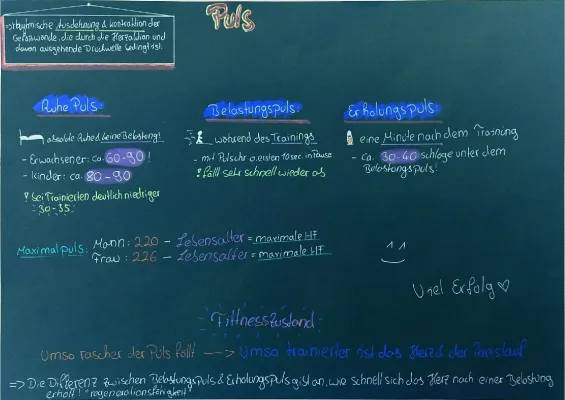 Puls
=> rhythmische Ausdehnung & Kontraktion der
Gefässwände, die durch die Herzaktion und
davon ausgehende Druckwelle bedingt ist.
Ruhe Puls:
absolute Ruhe & keine Belastung!
- Erwachsener: ca. 60-90!
- Kinder: ca. 80-90
! bei Trainierten deutlich niedriger
30-35
Belastungspuls:
während des Trainings
- mit Pulsuhr o. ersten 10 sec. in Pause
! fällt sehr schnell wieder ab
Erholungspuls:
eine Minute nach dem Training
- ca. 30-40 schläge unter dem
Belastungspuls!
Maximalpuls:
Mann: 220 - Lebensalter = maximale HF
Frau: 226 - Lebensalter = maximale HF
Viel Erfolg ♡
Fittnesszustand:
Umso rascher der Puls fällt --> Umso trainierter ist das Herz & der Kreislauf
=> Die Differenz zwischen Belastungspuls & Erholungspuls gibt an, wie schnell sich das Herz nach einer Belastung
erholt! "regenerationsfähigkeit"